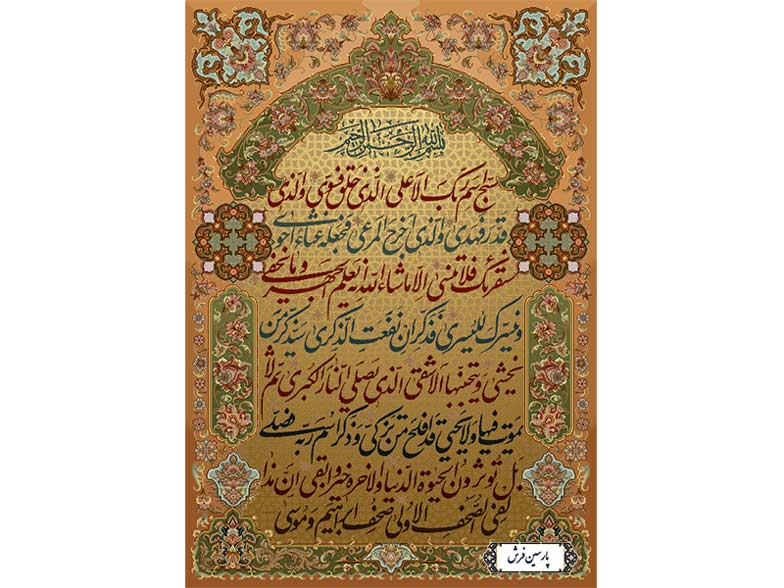 بسم الله الرحمن الرحیم
سبح اسم ربک الاعلی الذی خلق فسوی والذی
قدر فهدی والذی اخرج المرعی فجعله غثاء احوی
سنقرئک فلا تنسی الا ما شاء الله انه یعلم الجهر و ما یخفی
و نیسرک للیسری فذکر ان نفعت الذکری سیذکر من
یخشی و یتجنبها الاشقی الذی یصلی النار الکبری ثم لا
یموت فیها ولا یحیی قد افلح من تزکی و ذکر اسم ربه فصلی
بل تؤثرون الحیوة الدنیا والاخرة خیر و ابقی ان هذا
لفی الصحف الاولی صحف ابراهیم و موسی
پارسین فرش